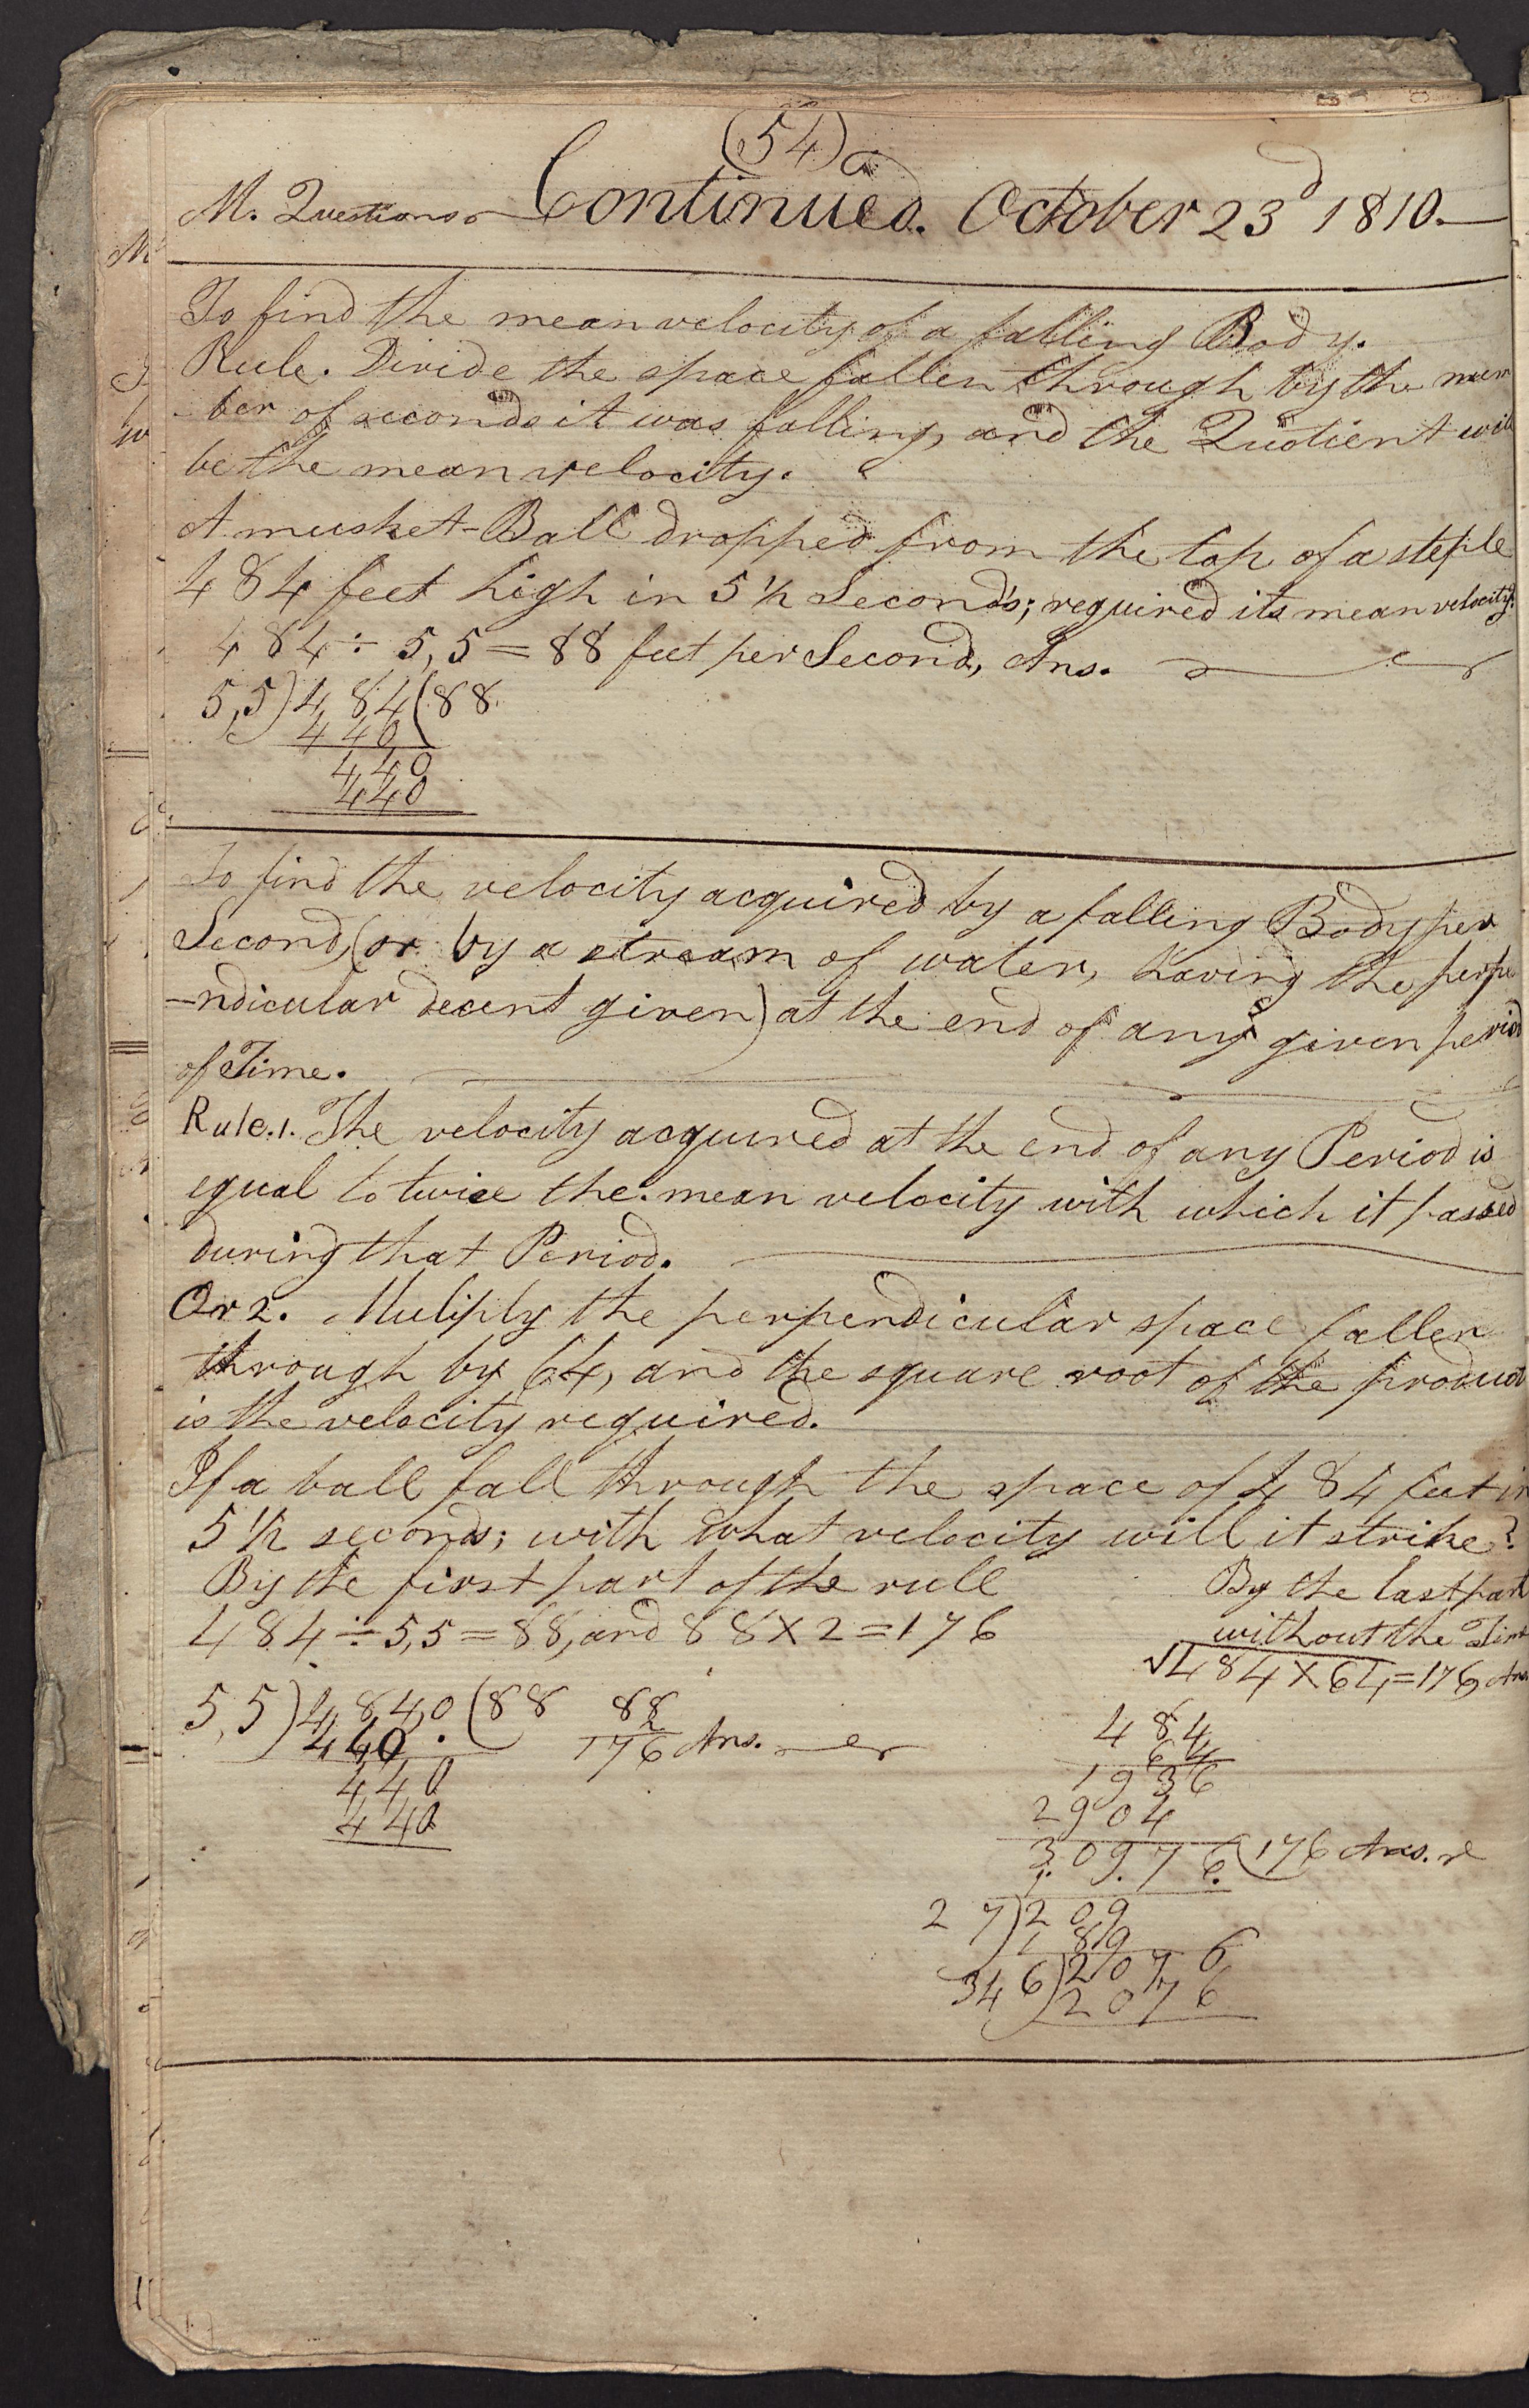 (54)
M. Questions Continued. October 23d 1810.
To find the mean velocity of a falling Body.
Rule. Divide the space fallen through by the num
-ber of seconds it was falling, and the Quotient will
be the mean velocity.
A musket-Ball dropped from the top of a steple
484 feet high in 5 1/2 Seconds; required its mean velocity.
484 ÷ 5,5 = 88 feet per Second, Ans.
5,5)484(88
440
440
440
To find the velocity acquired by a falling Body per
Second, (or by a stream of water, having the perpe
-ndicular decent given) at the end of any given period
of Time.
Rule.1. The velocity acquired at the end of any Period is
equal to twice the mean velocity with which it passed
during that Period.
Or 2. Muliply the perpendicular space fallen
through by 64, and the square root of the product
is the velocity required.
If a ball fall through the space of 484 feet in
5 1/2 seconds; with what velocity will it strike?
By the first part of the rull
484 ÷ 5,5 = 88, and 88 X 2 = 176
5,5)484,0(88
440
440
440
88
2
176 Ans.
By the last part
without the Time
√484 X 64 = 176 Ans
484
64
1936
2904
30976(176 Ans.
1
27)209
189
346)2076
2076